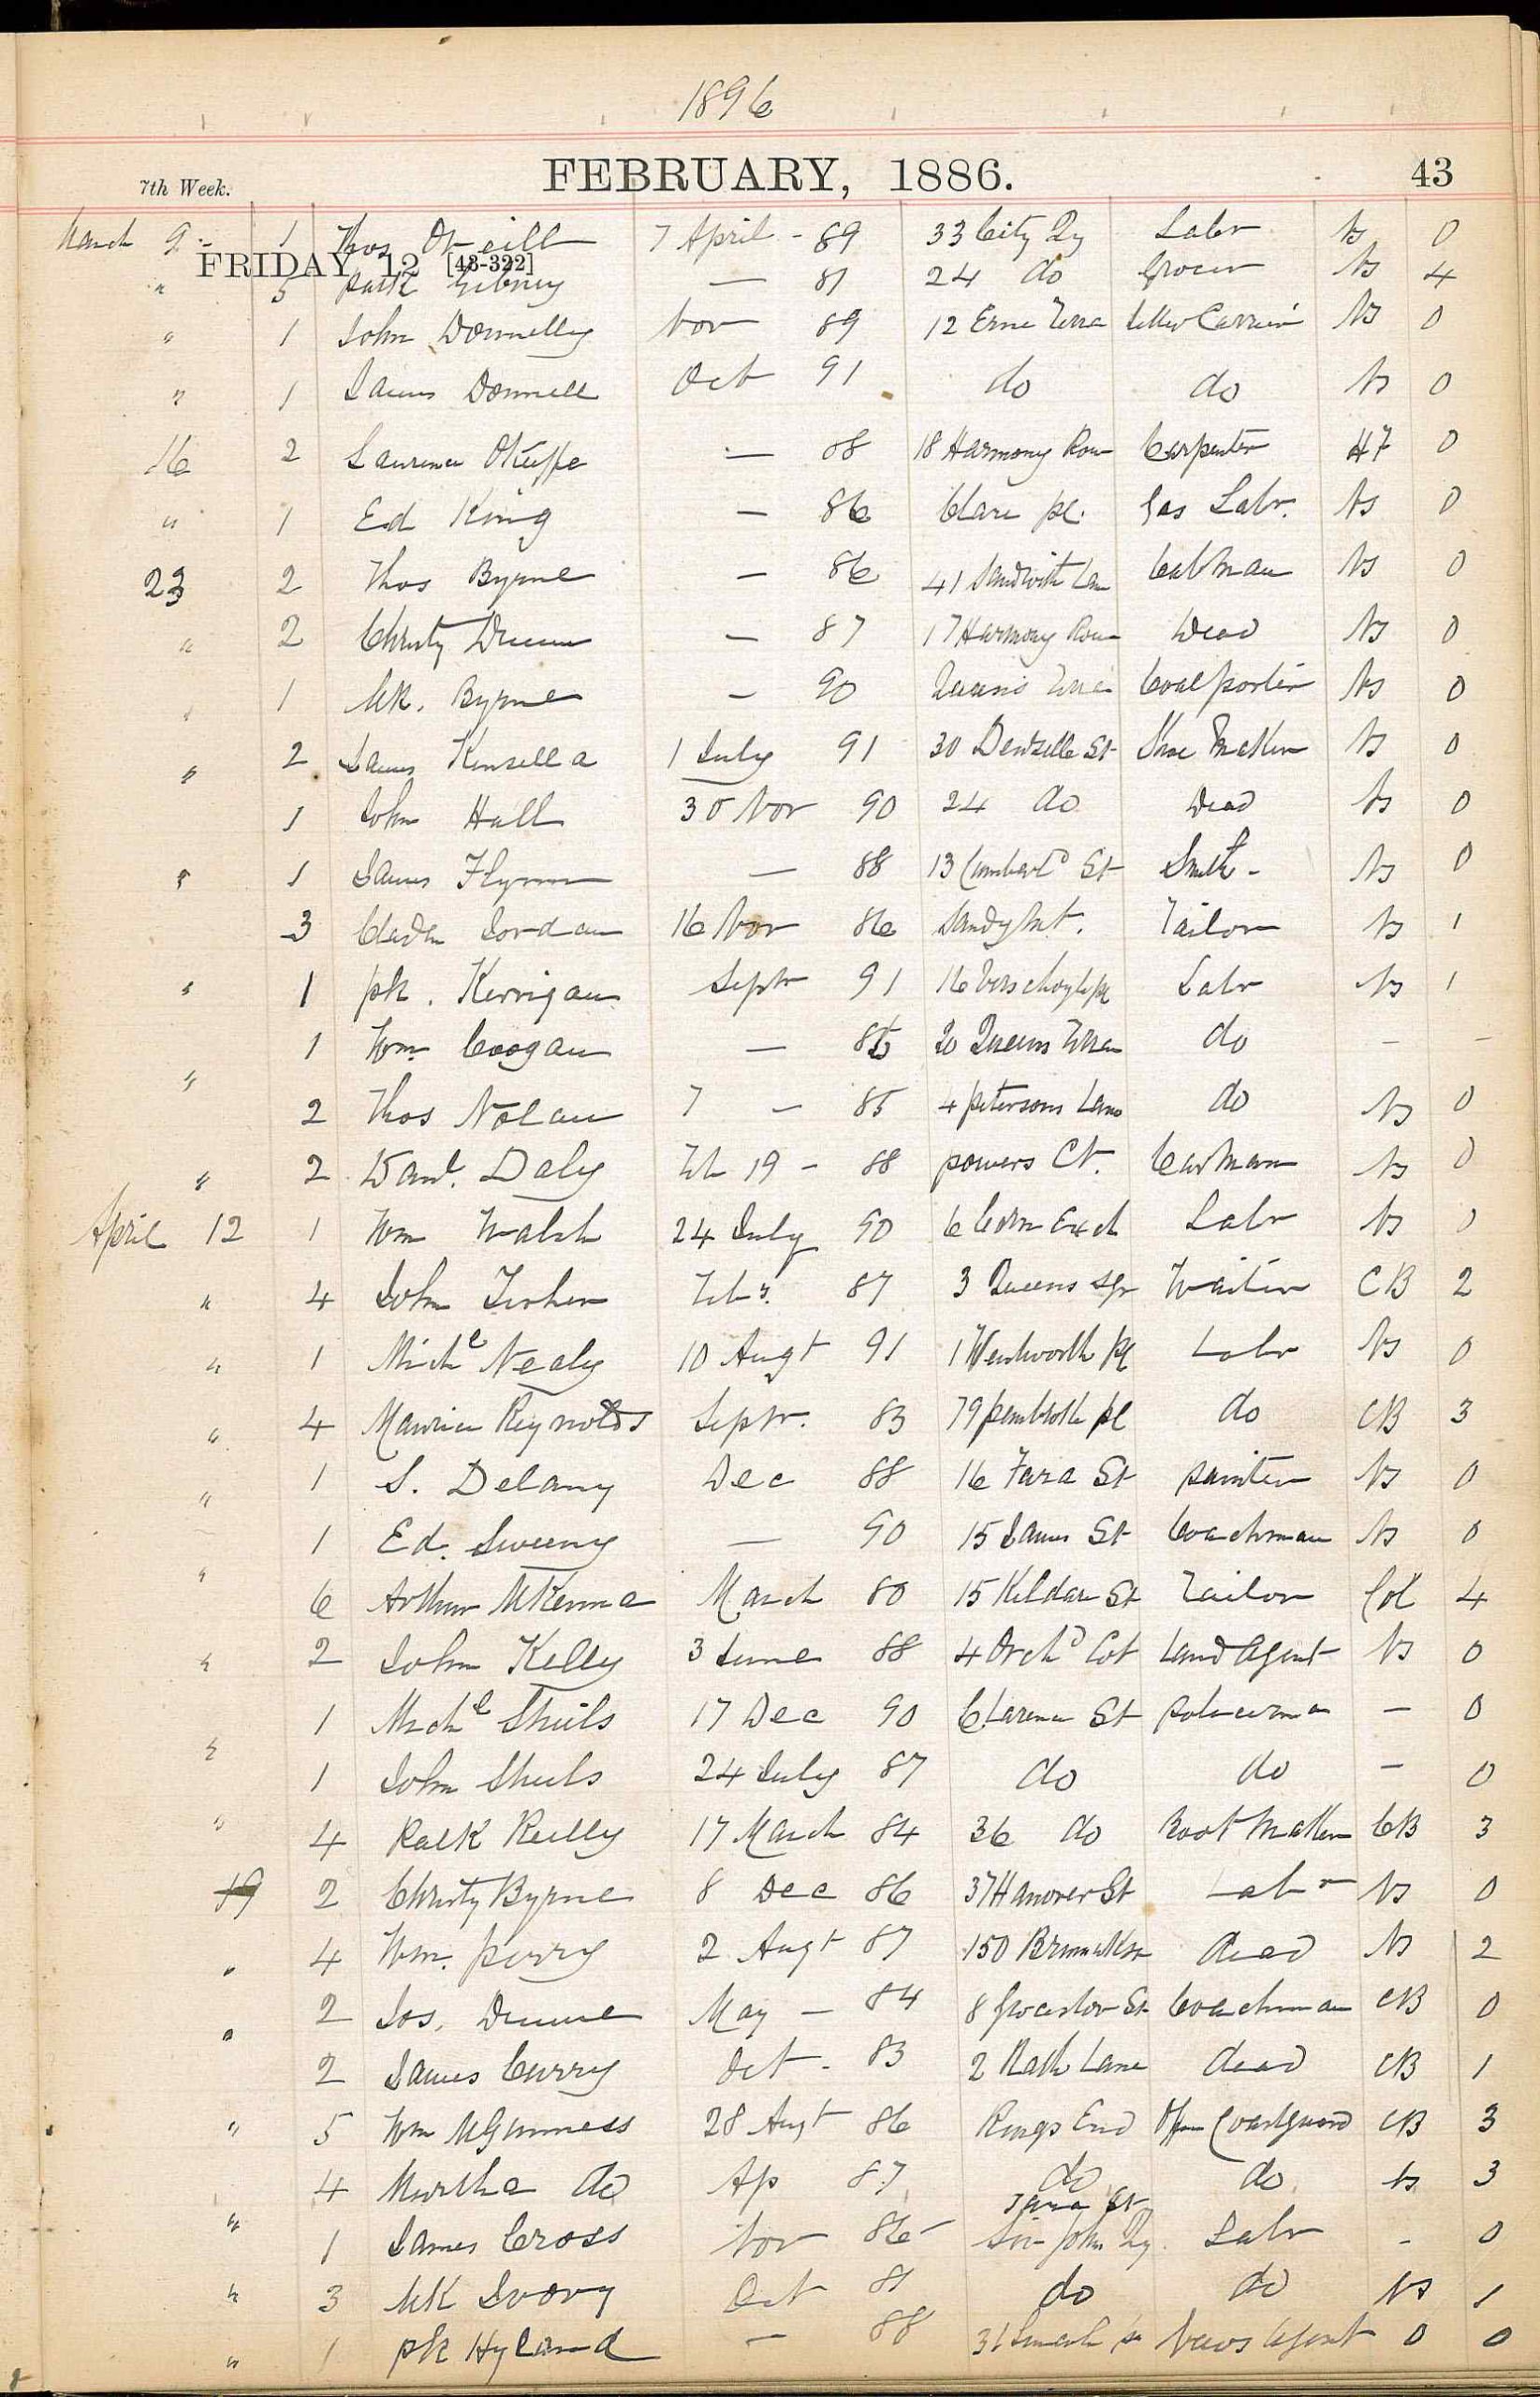 1896
7th Week. FEBRUARY, 1886. 43
March 9 1 Thos O'Neill 7 April - 89 33 City Qy Labr Ns 0
FRIDAY 12 [43-322]
" 5 Patk Gibney — 81 24 do Grocer Ns 4
" 1 John Donnelly Nov 89 12 Erne Terrce Letter Carrier Ns 0
" 1 James Donnell Oct 91 do do Ns 0
16 2 Laurence OKeeffe — 88 18 Harmony Row Carpenter H7 0
" 1 Ed King — 86 Clare pl. Gas Labr. Ns 0
23 2 Thos Byrne — 86 41 Sandwith Lan Cabman Ns 0
" 2 Christy Dunne — 87 17 Harmony Row Dead Ns 0
" 1 Mk. Byrne — 90 Queens Terrce Coal porter Ns 0
" 2 James Kinsella 1 July 91 30 Denzille St Shoe Maker Ns 0
1 John Hall 30 Nov 90 24 do Dead Ns 0
" 1 James Flynn — 88 13 Cumberld St Smith - Ns 0
3 Jordan 16 Nov 86 Sandymt. Tailor Ns 1
" 1 pk. Kerrigan Septr 91 16 Verschoyle pl Labr Ns 1
1 Wm Coogan — 20 Queens Terrce do — —
" 2 Thos Nolan 7 — 85 4 petersons Lane do Ns 0
" 2 Danl. Daly Feb 19 - 88 powers Ct. Carman Ns 0
April 12 1 Wm Walsh 24 July 90 6 Corn Exch Labr Ns 0
" 4 John Feby. 87 3 Queens sqr Waiter CB 2
" 1 Michl Nealy 10 Augt 91 1 Wentworth pl Labr Ns 0
" 4 Maurice Reynolds Septr. 83 79 pembroke pl do CB 3
" 1 J. Delany Dec 88 16 Tara St painter Ns 0
1 Ed. Sweeny — 90 15 James St Coachman Ns 0
" 6 Arthur McKenna March 80 15 Kildare St Tailor Col 4
" 2 John Kelly 3 June 88 4 Orchd Cot Land Agent Ns 0
1 Michl Shiels 17 Dec 90 Clarence St policeman — 0
" 1 John Shiels 24 July 87 do do — 0
" 4 Patk Reilly 17 March 84 36 do Boot Maker CB 3
19 2 Christy Byrne 8 Dec 86 37 Hanover St Labr Ns 0
" 4 Wm. perry 2 Augt 87 150 Brunswk St dead Ns 2
" 2 Jos. Dunne May — 84 8 Grosvenor St Coachman CB 0
2 James Curry Oct - 83 2 Rath Lane dead CB 1
" 5 Wm McGuinness 28 Augt 86 Rings End Offr Coastguard CB 3
4 Martha do Ap 87 do do Ns 3
" 1 James Cross Nov 86 - Tara St Sir John Qy. Labr - 0
" 3 Mk Ivory Oct 81 do do Ns 1
" 1 pk Hyland — 88 News Agent 0 0